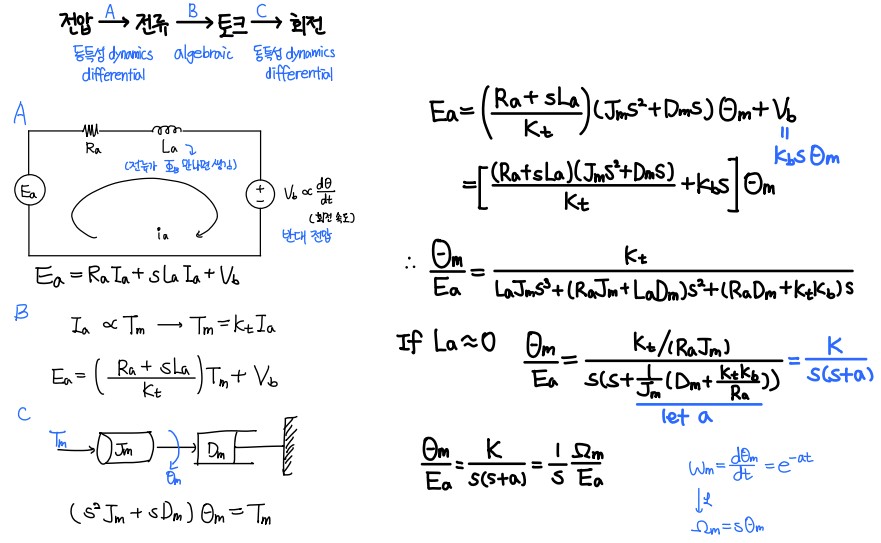 전압 A→ 전류 B→ 토크 C→ 회전
동특성 dynamics differential
algebraic
동특성 dynamics differential
A
Ra
La
(전류가 흐름 만나면 생김)
Ea
ia
Vb ∝ dθ/dt
(회전 속도)
반대 전압
Ea = RaIa + sLaIa + Vb
B
Ia ∝ Tm → Tm = KtIa
Ea = ((Ra + sLa)/Kt)Tm + Vb
C
Tm
Jm
θm
Dm
(s²Jm + sDm)Θm = Tm
Ea = ((Ra + sLa)/Kt)(Jms² + Dms)Θm + Vb
=
KbsΘm
= [(Ra + sLa)(Jms² + Dms)/Kt + Kbs]Θm
∴ Θm/Ea = Kt/(LaJms³ + (RaJm + LaDm)s² + (RaDm + KtKb)s)
If La ≈ 0 Θm/Ea = (Kt/(RaJm))/(s(s + 1/Jm(Dm + KtKb/Ra))) = K/(s(s+a))
let a
Θm/Ea = K/(s(s+a)) = 1/s Ωm/Ea
ωm = dθm/dt = e^-at
↓ℒ
Ωm = sΘm